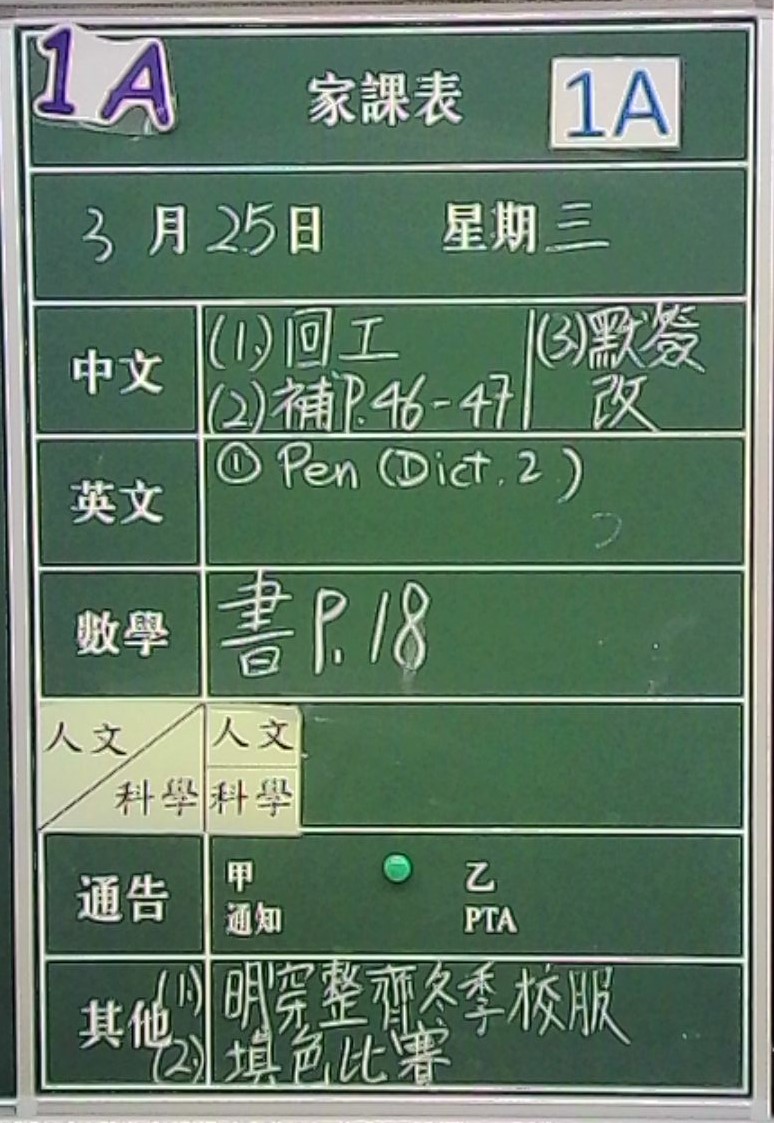 1A 家課表 1A
3月25日 星期三
中文 (1) 回工 (3) 默簽
(2) 補P.46-47 改
英文 ① Pen (Dict. 2)
數學 書 P.18
人文 人文
科學 科學
通告 甲 乙
通知 PTA
其他 (1) 明穿整齊冬季校服
(2) 填色比賽